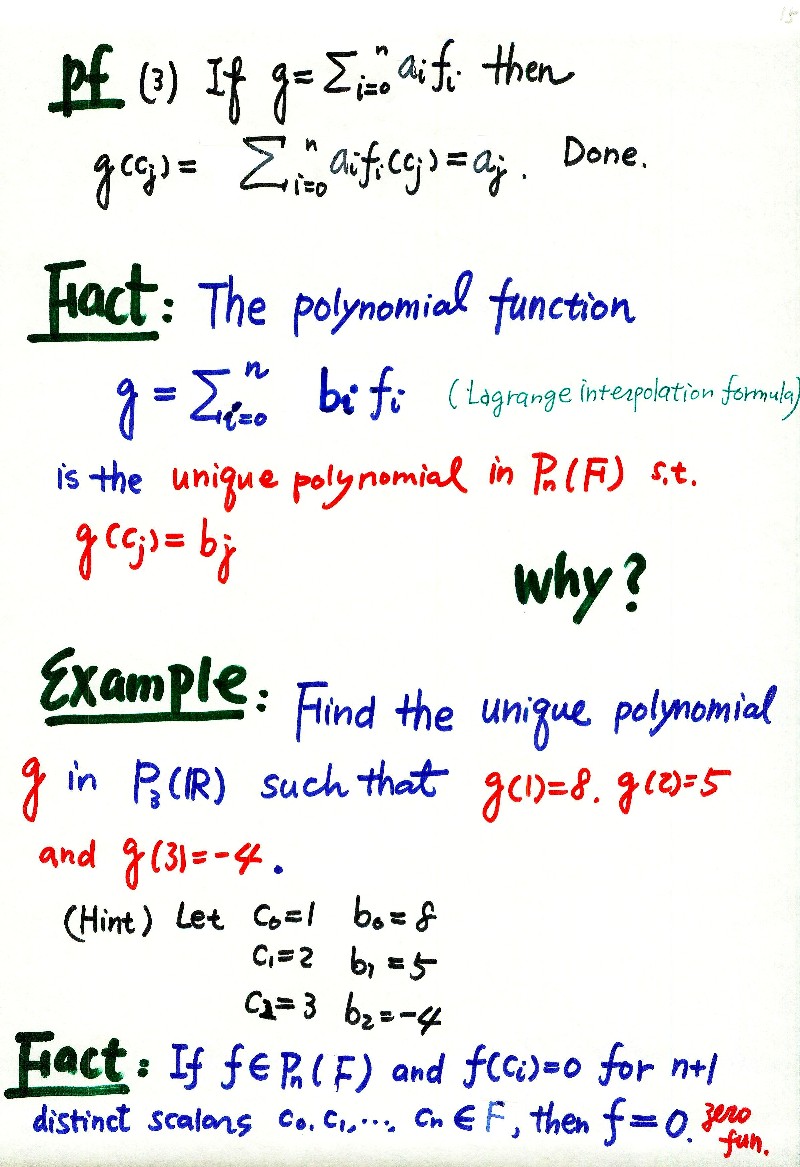 15
pf (3) If g = Σ_{i=0}^{n} a_i f_i then
g(c_j) = Σ_{i=0}^{n} a_i f_i(c_j) = a_j. Done.
Fact: The polynomial function
g = Σ_{i=0}^{n} b_i f_i (Lagrange interpolation formula)
is the unique polynomial in P_n(F) s.t.
g(c_j) = b_j
why?
Example: Find the unique polynomial
g in P_3(ℝ) such that g(1)=8. g(2)=5
and g(3)=-4.
(Hint) Let c_0=1 b_0=8
c_1=2 b_1=5
c_2=3 b_2=-4
Fact: If f∈P_n(F) and f(c_i)=0 for n+1
distinct scalars c_0, c_1, ..., c_n ∈ F, then f=0. zero
fun.